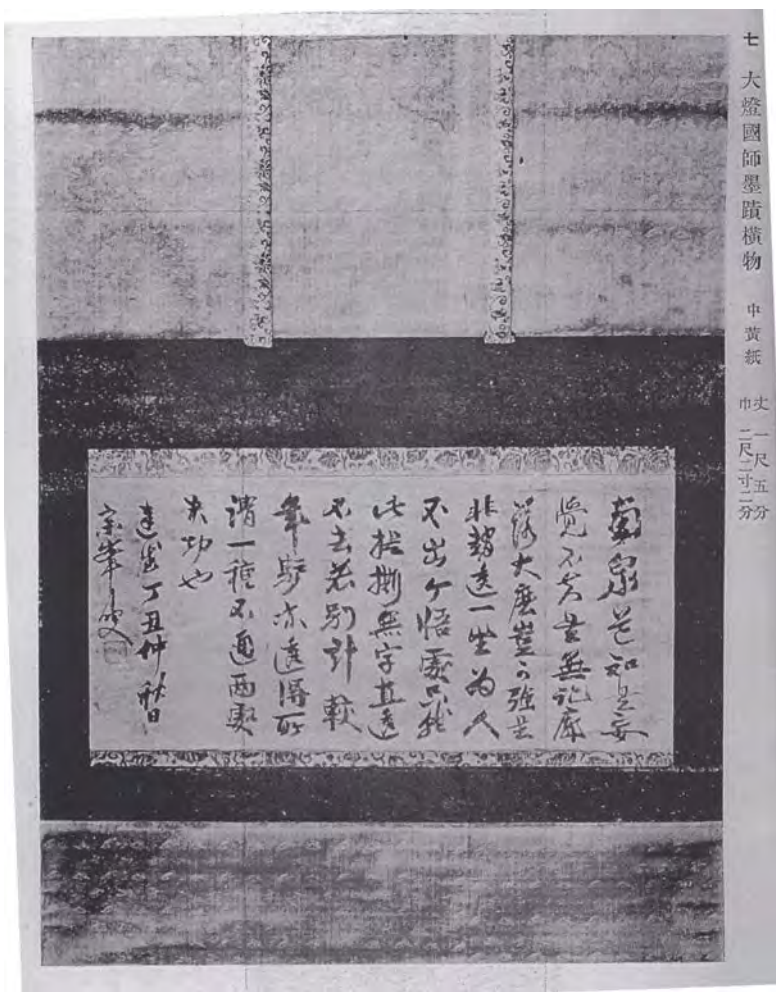 七 大燈國師墨蹟横物 中黄紙 丈一尺五分 巾二尺二寸二分
南泉道知是妄
覺不知是無記廓
落大虚豈可強是
非趙遠一生為人
不出ケ悟處只就
此提撕無字直遠
不去若別計較
遠得所
謂一種不通兩處
失功也
建武丁丑仲秋日
宗峯叟